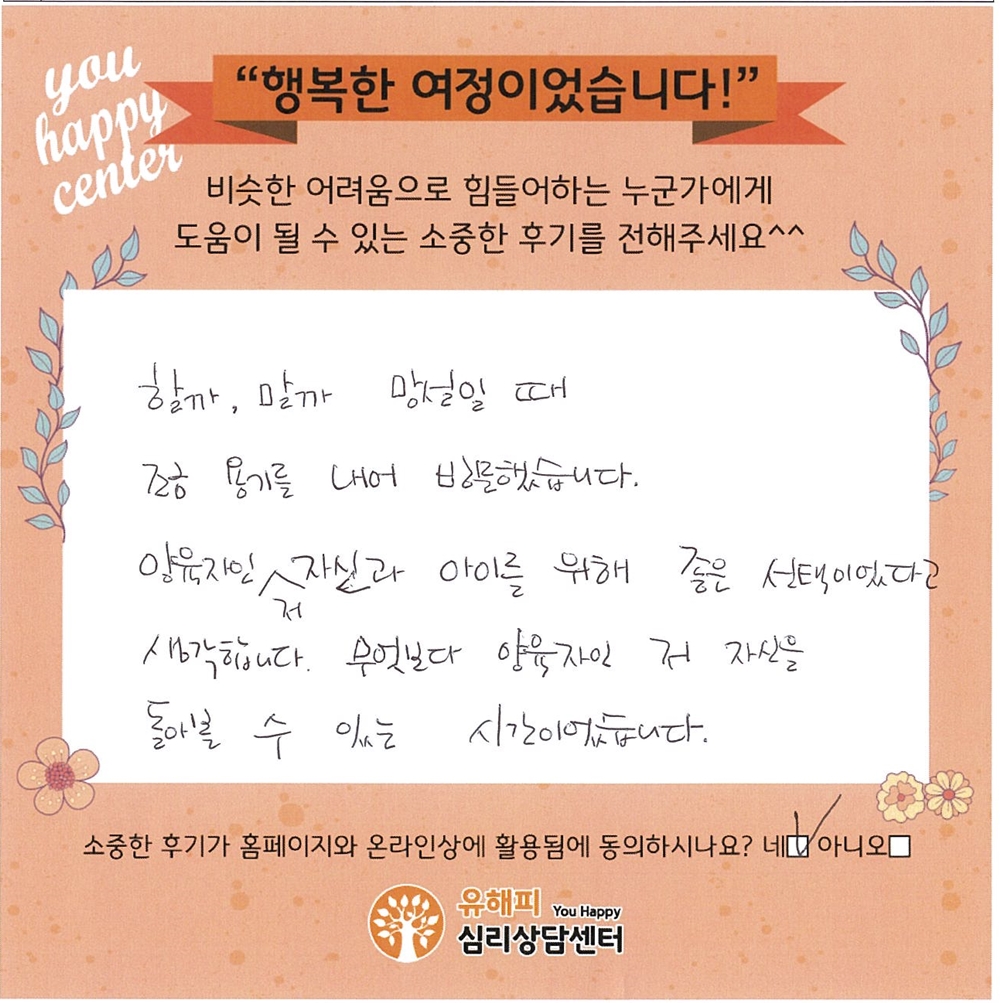 you
happy
center
“행복한 여정이었습니다!”
비슷한 어려움으로 힘들어하는 누군가에게
도움이 될 수 있는 소중한 후기를 전해주세요^^
할까, 말까 망설일 때
조금 용기를 내어 방문했습니다.
양육자인 저 자신과 아이를 위해 좋은 선택이었다고
생각합니다. 무엇보다 양육자인 저 자신을
돌아볼 수 있는 시간이었습니다.
소중한 후기가 홈페이지와 온라인상에 활용됨에 동의하시나요? 네☑ 아니오□
유해피 You Happy
심리상담센터